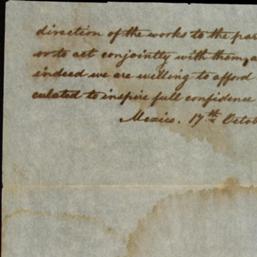 direction of the works to the par
or to act conjointly with them, a
indeed we are willing to afford
culated to inspire full confidence
Mexico. 17th Octob